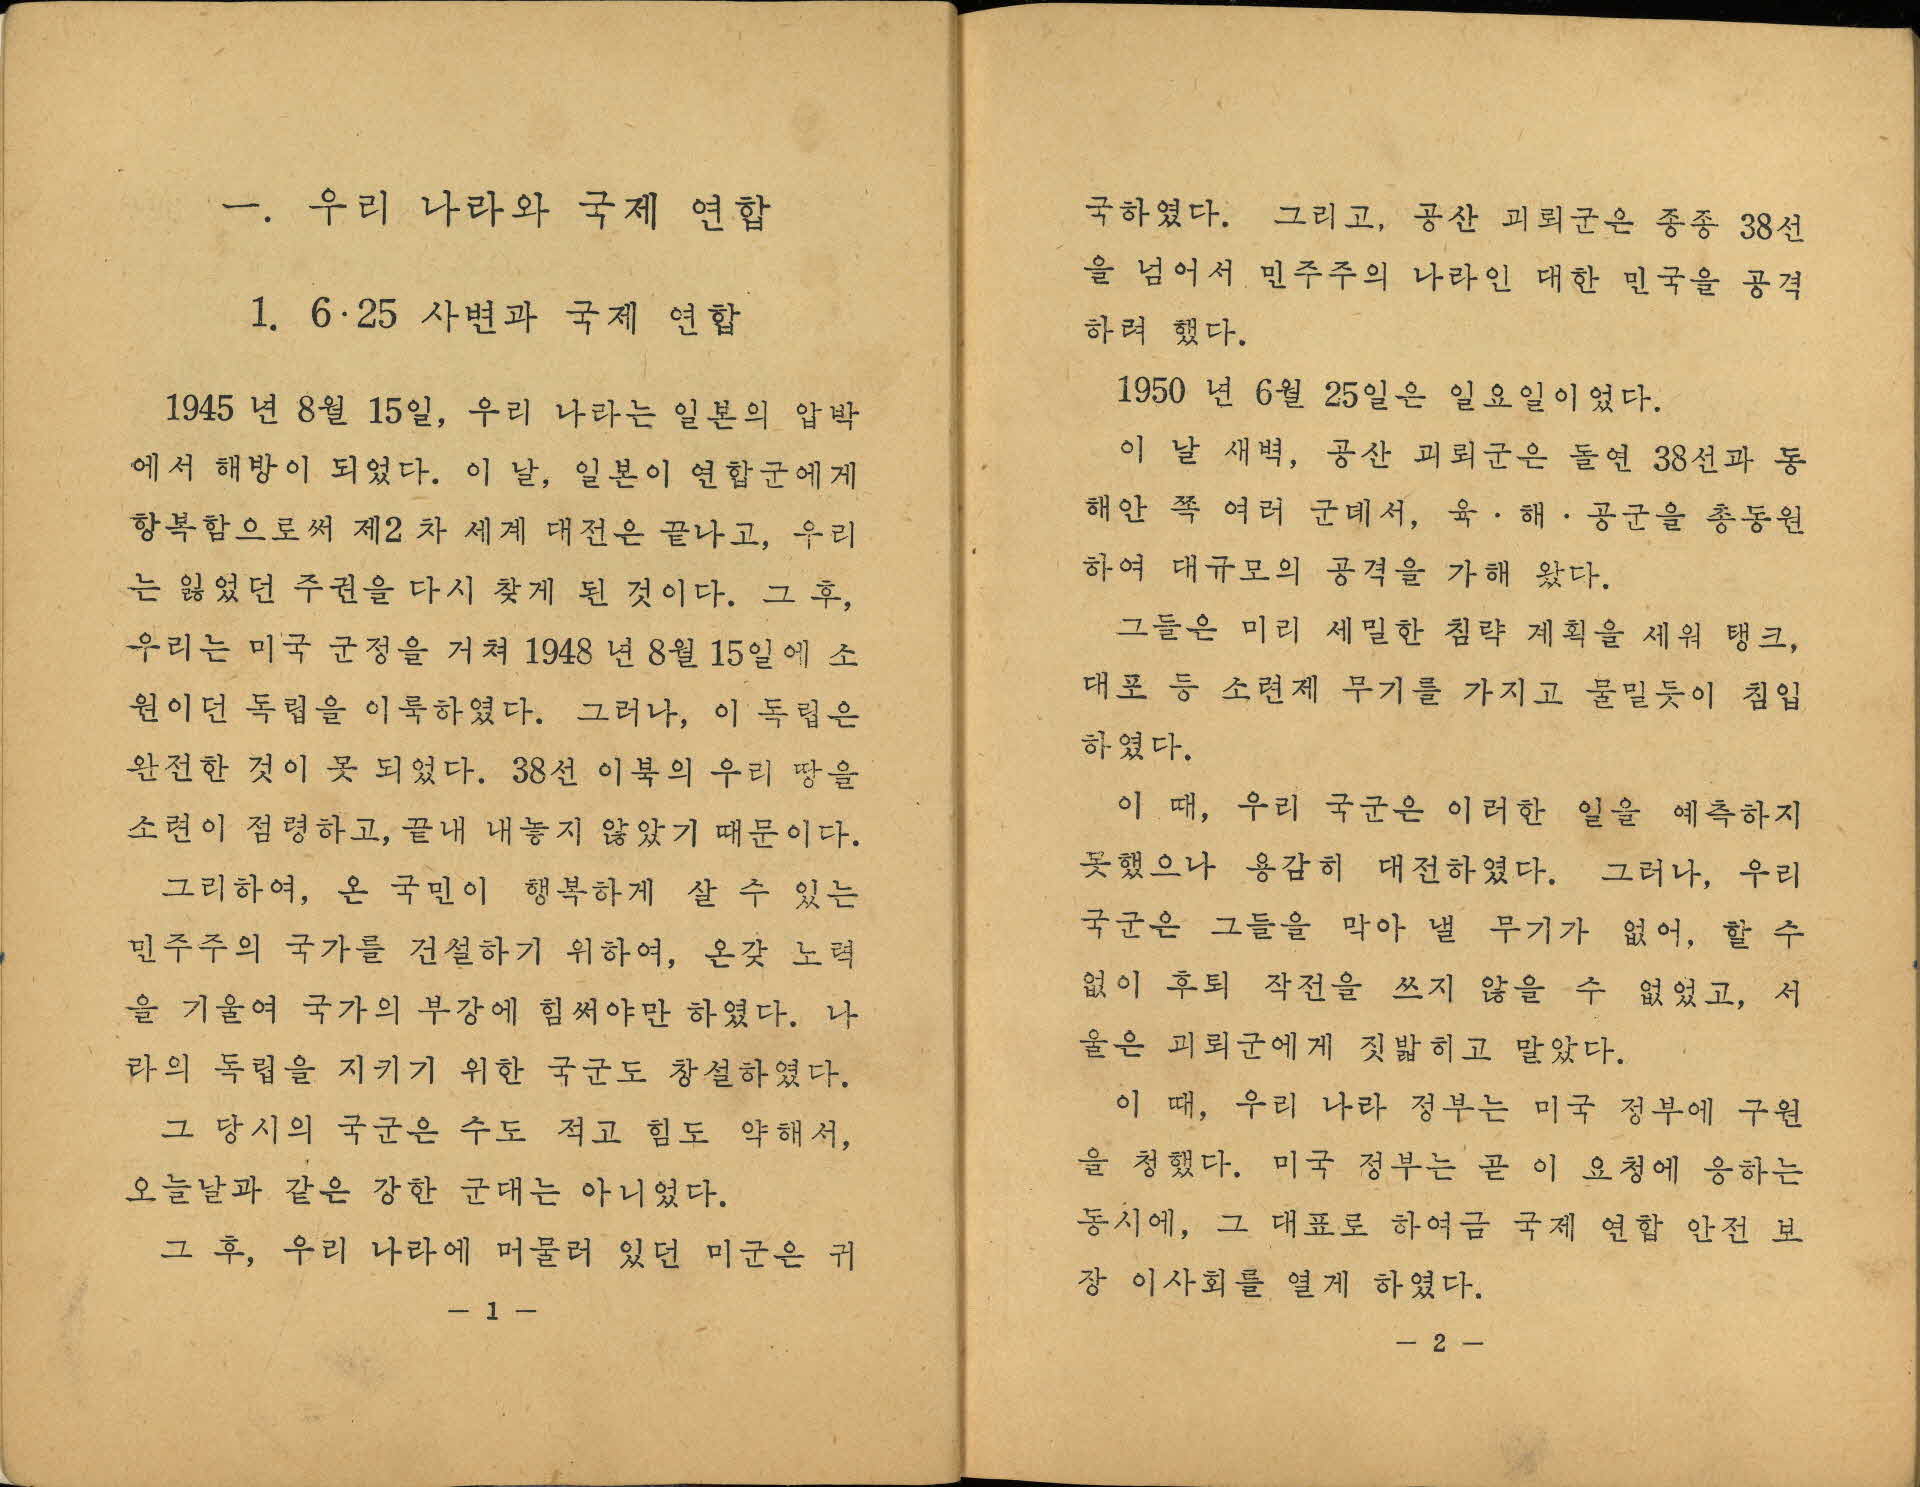 一. 우리 나라와 국제 연합
1. 6·25 사변과 국제 연합
1945년 8월 15일, 우리 나라는 일본의 압박
에서 해방이 되었다. 이 날, 일본이 연합군에게
항복함으로써 제2차 세계 대전은 끝나고, 우리
는 잃었던 주권을 다시 찾게 된 것이다. 그 후,
우리는 미국 군정을 거쳐 1948년 8월 15일에 소
원이던 독립을 이룩하였다. 그러나, 이 독립은
완전한 것이 못 되었다. 38선 이북의 우리 땅을
소련이 점령하고, 끝내 내놓지 않았기 때문이다.
그리하여, 온 국민이 행복하게 살 수 있는
민주주의 국가를 건설하기 위하여, 온갖 노력
을 기울여 국가의 부강에 힘써야만 하였다. 나
라의 독립을 지키기 위한 국군도 창설하였다.
그 당시의 국군은 수도 적고 힘도 약해서,
오늘날과 같은 강한 군대는 아니었다.
그 후, 우리 나라에 머물러 있던 미군은 귀
— 1 —
국하였다. 그리고, 공산 괴뢰군은 종종 38선
을 넘어서 민주주의 나라인 대한 민국을 공격
하려 했다.
1950년 6월 25일은 일요일이었다.
이 날 새벽, 공산 괴뢰군은 돌연 38선과 동
해안 쪽 여러 군데서, 육·해·공군을 총동원
하여 대규모의 공격을 가해 왔다.
그들은 미리 세밀한 침략 계획을 세워 탱크,
대포 등 소련제 무기를 가지고 물밀듯이 침입
하였다.
이 때, 우리 국군은 이러한 일을 예측하지
못했으나 용감히 대전하였다. 그러나, 우리
국군은 그들을 막아 낼 무기가 없어, 할 수
없이 후퇴 작전을 쓰지 않을 수 없었고, 서
울은 괴뢰군에게 짓밟히고 말았다.
이 때, 우리 나라 정부는 미국 정부에 구원
을 청했다. 미국 정부는 곧 이 요청에 응하는
동시에, 그 대표로 하여금 국제 연합 안전 보
장 이사회를 열게 하였다.
— 2 —